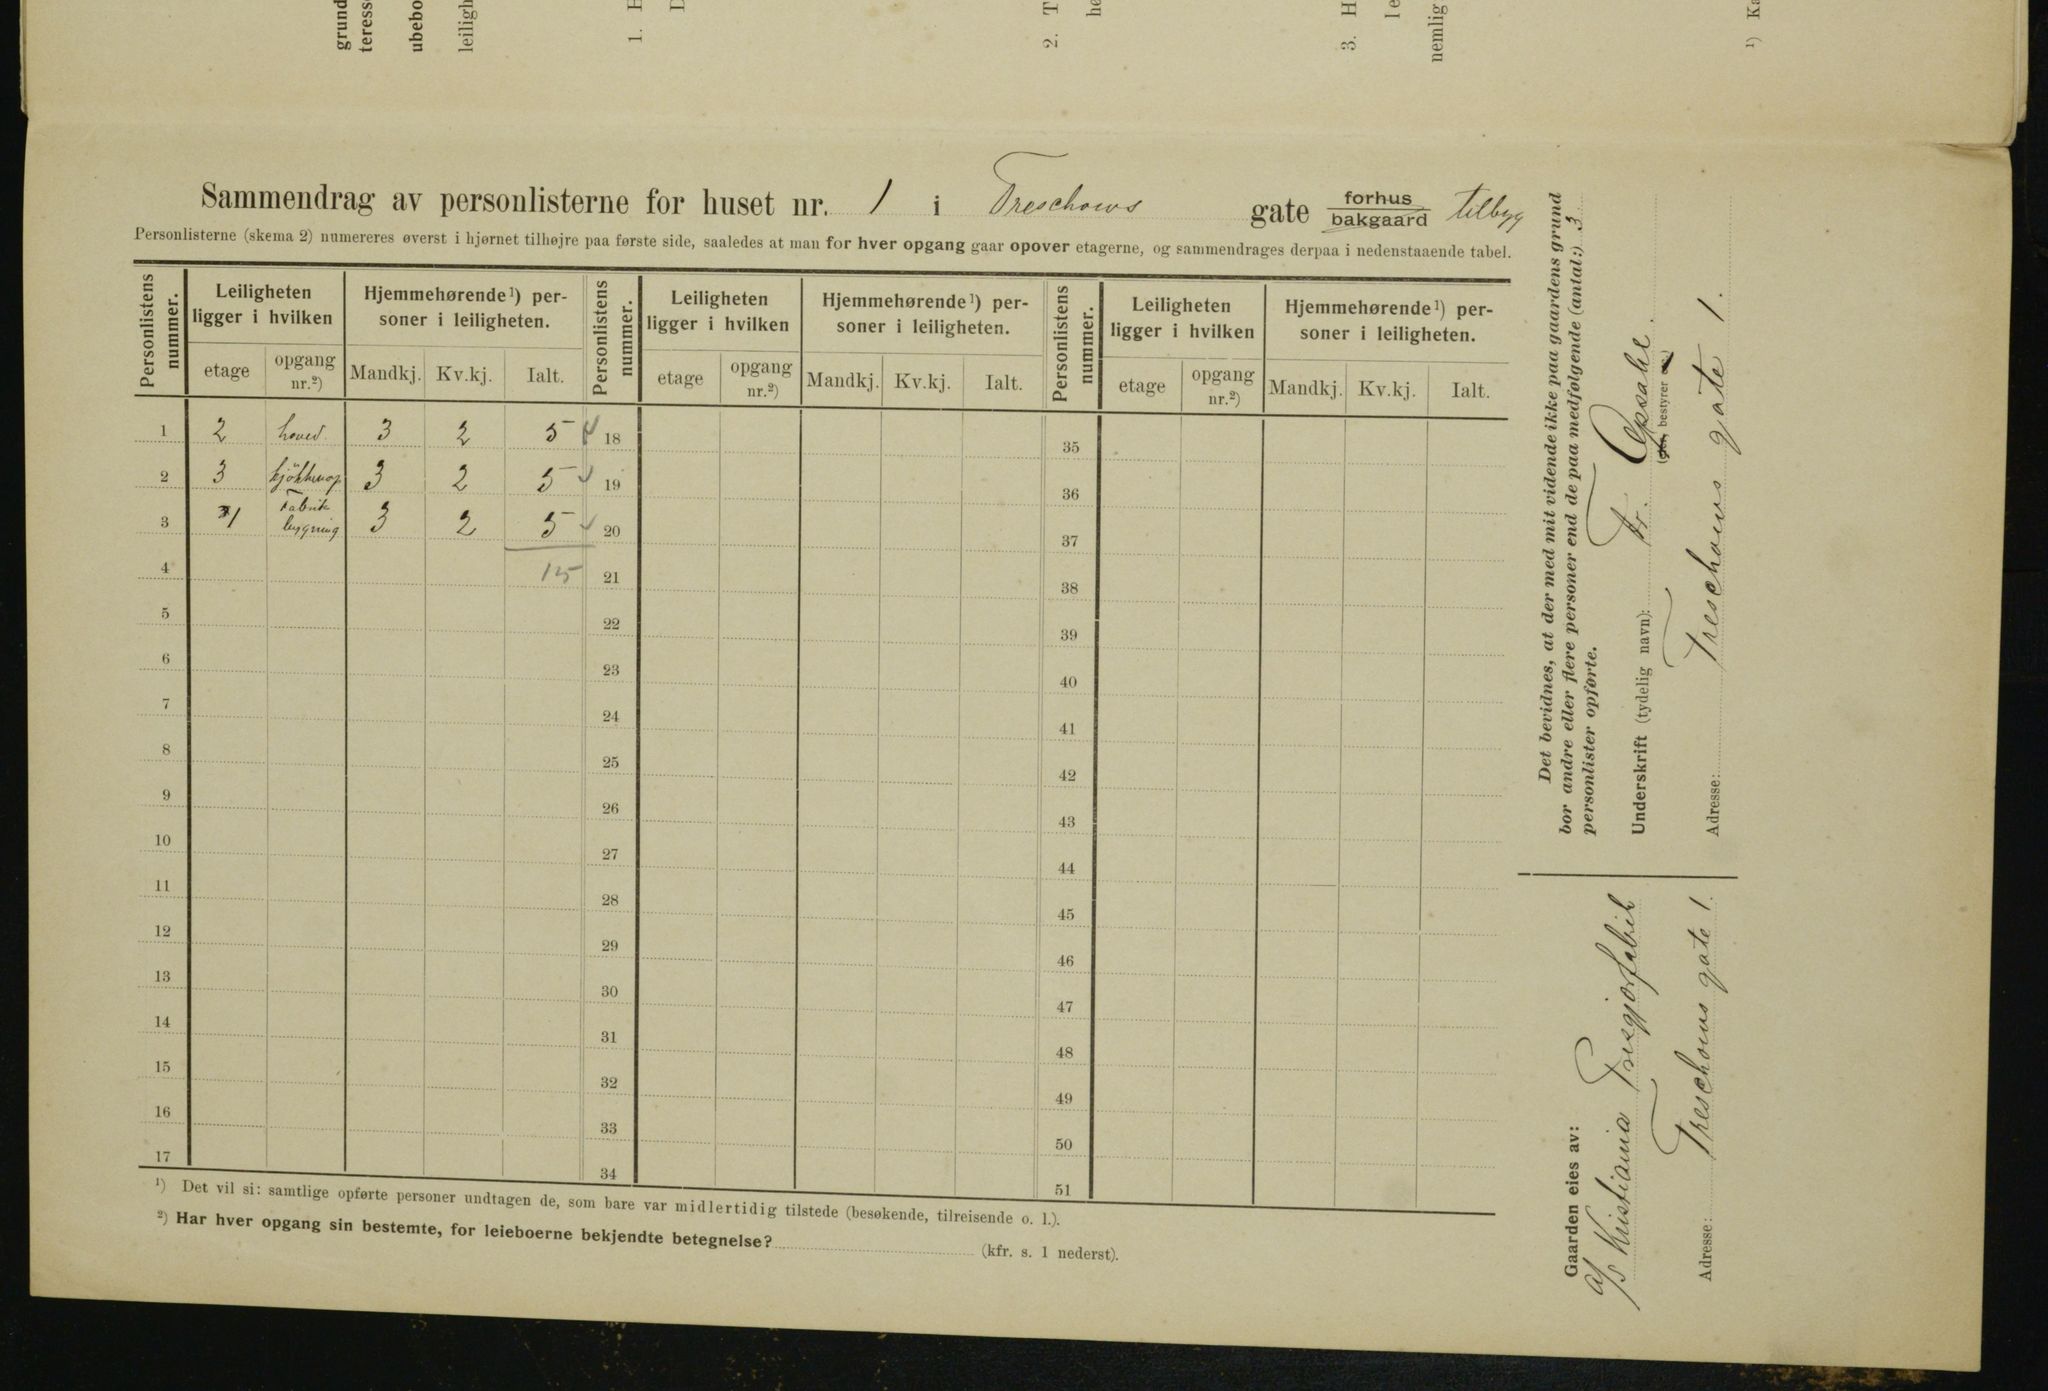 grund
teress
ubebo
leiligh
1. H
D
2. T
hø
3. H
le
nemlig
¹) Ka
Sammendrag av personlisterne for huset nr. 1 i Treschows gate forhus bakgaard tilbyg
Personlisterne (skema 2) numereres øverst i hjørnet tilhøjre paa første side, saaledes at man for hver opgang gaar opover etagerne, og sammendrages derpaa i nedenstaaende tabel.
Personlistens nummer. Leiligheten ligger i hvilken Hjemmehørende¹) personer i leiligheten. Personlistens nummer. Leiligheten ligger i hvilken Hjemmehørende¹) personer i leiligheten. Personlistens nummer. Leiligheten ligger i hvilken Hjemmehørende¹) personer i leiligheten.
etage opgang nr.²) Mandkj. Kv.kj. Ialt. etage opgang nr.²) Mandkj. Kv.kj. Ialt. etage opgang nr.²) Mandkj. Kv.kj. Ialt.
1 2 hoved. 3 2 5 18 35
2 3 kjökkenop 3 2 5 19 36
3 1 Fabrik bygning 3 2 5 20 37
4 15 21 38
5 22 39
6 23 40
7 24 41
8 25 42
9 26 43
10 27 44
11 28 45
12 29 46
13 30 47
14 31 48
15 32 49
16 33 50
17 34 51
¹) Det vil si: samtlige opførte personer undtagen de, som bare var midlertidig tilstede (besøkende, tilreisende o. l.).
²) Har hver opgang sin bestemte, for leieboerne bekjendte betegnelse? (kfr. s. 1 nederst).
Det bevidnes, at der med mit vidende ikke paa gaardens grund
bor andre eller flere personer end de paa medfølgende (antal:) 3
personlister opførte.
Underskrift (tydelig navn): Fr. Opsahl.
(eier, bestyrer etc.)
Adresse: Treschows gate 1.
Gaarden eies av:
A/S Kristiania Træsgjærfabrik
Adresse: Treschows gate 1.